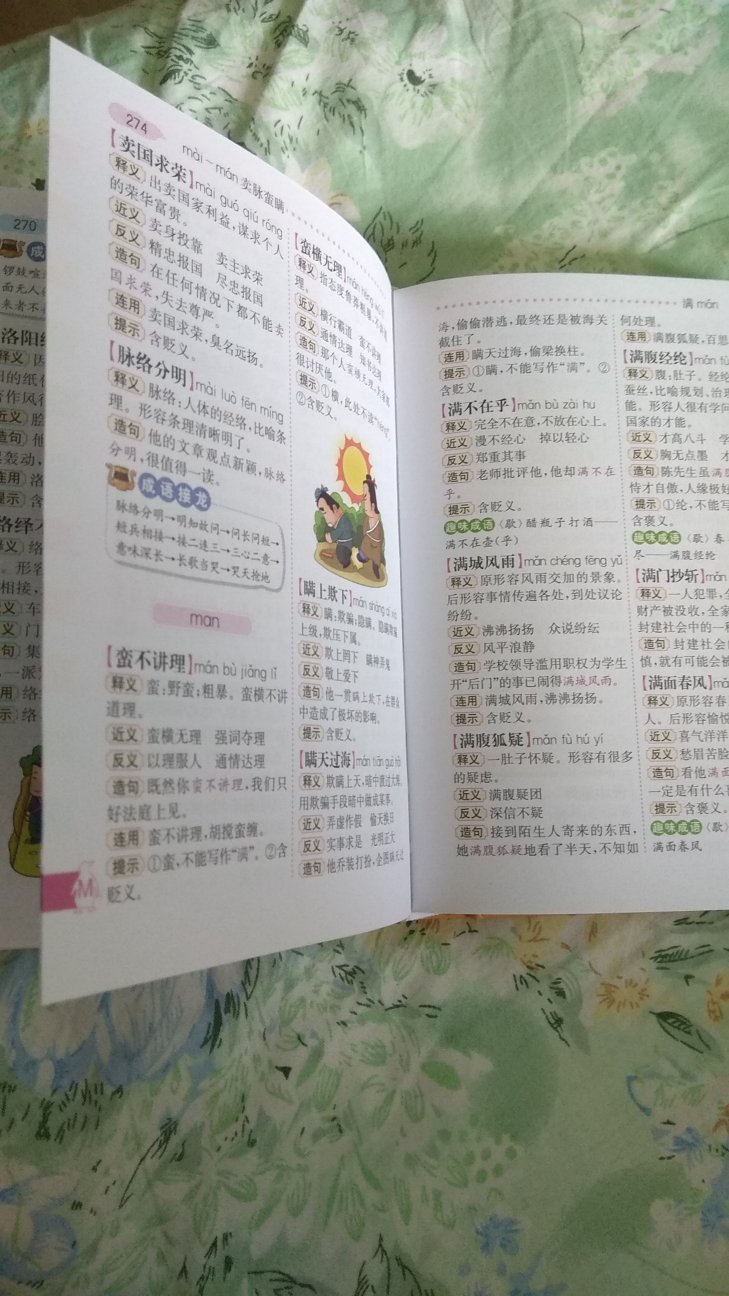 270
274
mài－mán 卖脉蛮瞒
【卖国求荣】mài guó qiú róng
释义 出卖国家利益，谋求个人
的荣华富贵。
近义 卖身投靠 卖主求荣
反义 精忠报国 尽忠报国
造句 在任何情况下都不能卖
国求荣，失去尊严。
连用 卖国求荣，臭名远扬。
提示 含贬义。
【脉络分明】mài luò fēn míng
释义 脉络：人体的经络，比喻条
理。形容条理清晰明了。
造句 他的文章观点新颖，脉络
分明，很值得一读。
成语接龙
脉络分明→明知故问→问长问短→
短兵相接→接二连三→三心二意→
意味深长→长歌当哭→哭天抢地
man
【蛮不讲理】mán bù jiǎng lǐ
释义 蛮：野蛮；粗暴。蛮横不讲
道理。
近义 蛮横无理 强词夺理
反义 以理服人 通情达理
造句 既然你蛮不讲理，我们只
好法庭上见。
连用 蛮不讲理，胡搅蛮缠。
提示 ①蛮，不能写作“满”。②含
贬义。
M
【蛮横无理】mán hèng wú lǐ
释义 指态度鲁莽粗暴，不讲道
理。
近义 横行霸道 蛮不讲理
反义 通情达理 知书达理
造句 那个人蛮横无理，大家都
很讨厌他。
提示 ①横，此处不读“héng”。
②含贬义。
【瞒上欺下】mán shàng qī xià
释义 瞒：欺骗；隐瞒。隐瞒欺骗
上级，欺压下属。
近义 欺上罔下 瞒神弄鬼
反义 敬上爱下
造句 他一贯瞒上欺下，在群众
中造成了极坏的影响。
提示 含贬义。
【瞒天过海】mán tiān guò hǎi
释义 欺瞒上天，暗中渡过大海。
用欺骗手段暗中做成某事。
近义 弄虚作假 偷天换日
反义 实事求是 光明正大
造句 他乔装打扮，企图瞒天过
满 mǎn
海，偷偷潜逃，最终还是被海关
截住了。
连用 瞒天过海，偷梁换柱。
提示 ①瞒，不能写作“满”。②
含贬义。
【满不在乎】mǎn bù zài hu
释义 完全不在意，不放在心上。
近义 漫不经心 掉以轻心
反义 郑重其事
造句 老师批评他，他却满不在
乎。
提示 含贬义。
趣味成语〈歇〉醋瓶子打酒——
满不在壶(乎)
【满城风雨】mǎn chéng fēng yǔ
释义 原形容风雨交加的景象。
后形容事情传遍各处，到处议论
纷纷。
近义 沸沸扬扬 众说纷纭
反义 风平浪静
造句 学校领导滥用职权为学生
开“后门”的事已闹得满城风雨。
连用 满城风雨，沸沸扬扬。
提示 含贬义。
【满腹狐疑】mǎn fù hú yí
释义 一肚子怀疑。形容有很多
的疑虑。
近义 满腹疑团
反义 深信不疑
造句 接到陌生人寄来的东西，
她满腹狐疑地看了半天，不知如
何处理。
连用 满腹狐疑，百思
【满腹经纶】mǎn fù
释义 腹：肚子。经纶
蚕丝，比喻规划、治理
能。形容人很有学问
国家的才能。
近义 才高八斗 学
反义 胸无点墨 才
造句 陈先生虽满腹
恃才自傲，人缘极好
提示 ①纶，不能写
含褒义。
趣味成语〈歇〉春
尽——满腹经纶
【满门抄斩】mǎn
释义 一人犯罪，全
财产被没收，全家
封建社会中的一种
造句 封建社会
慎，就有可能会被
【满面春风】mǎn
释义 原形容春
人。后形容愉悦
近义 喜气洋洋
反义 愁眉苦脸
造句 看他满面
一定是有什么
提示 含褒义。
趣味成语〈歇〉
满面春风